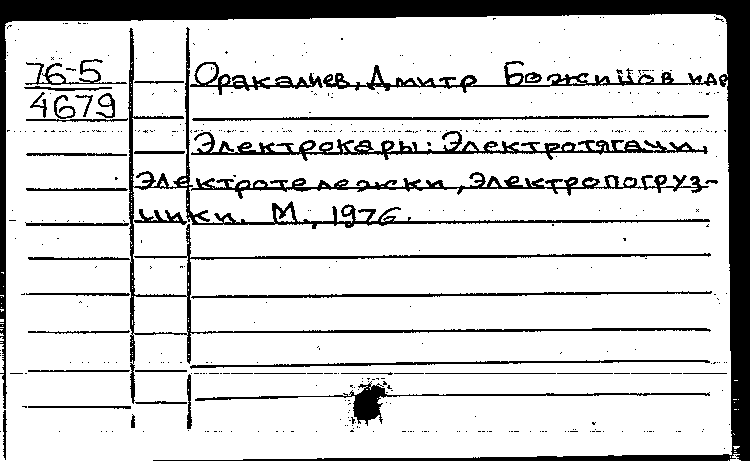 76-5
4679
Оракалиев, Дмитр Божинов и др
Электрокары: Электротягачи,
электротележки, электропогруз-
чики. М., 1976.